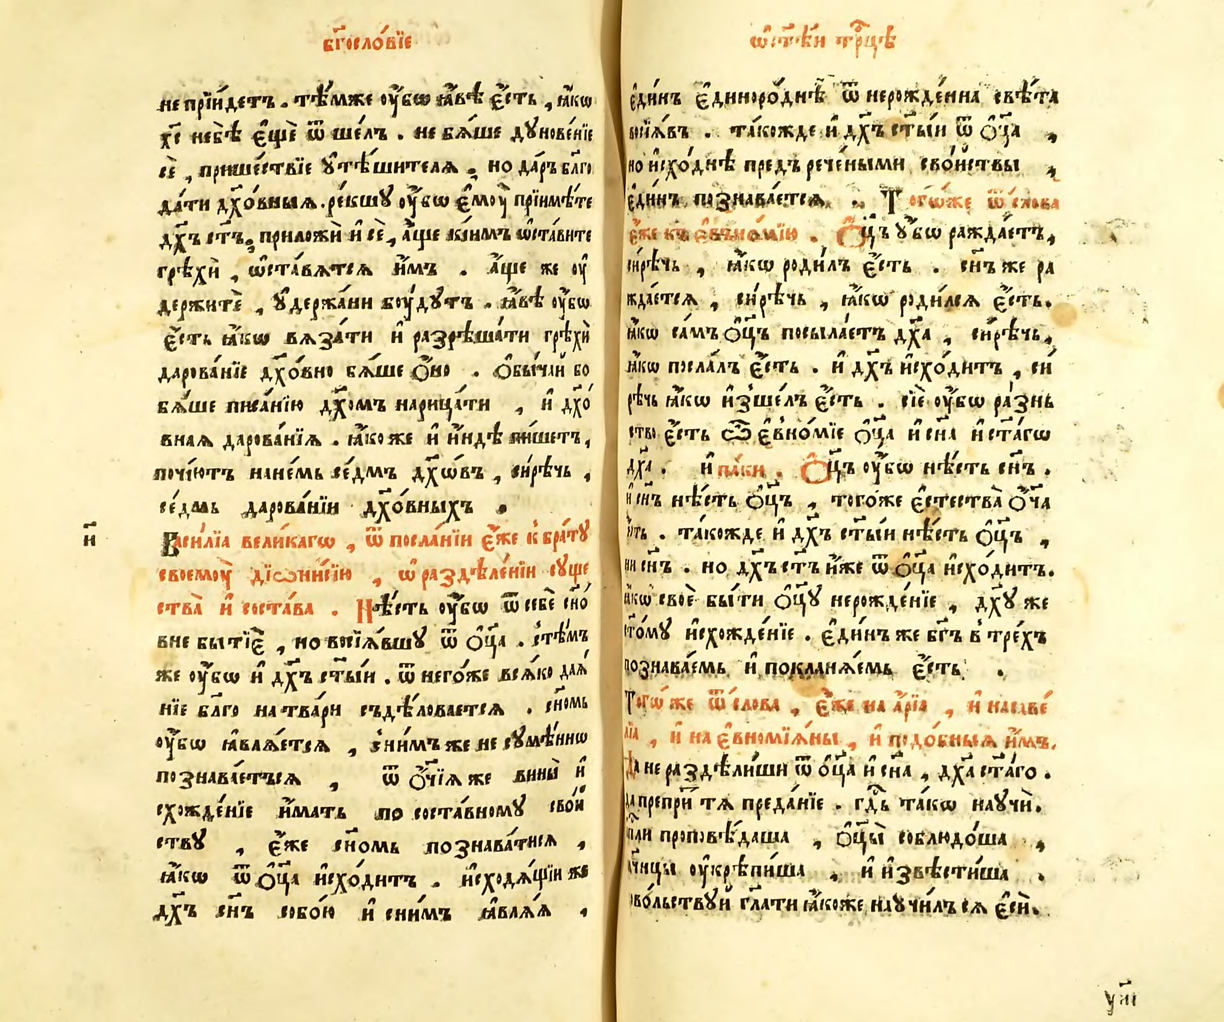 бг҃ословїе
не прїи́детъ . тѣ́мже ᲂу҆́бѡ ꙗ҆́вѣ є҆́сть , ꙗ҆́кѡ
хс҃ не бѣ̀ є҆щѐ ѿше́лъ . не бѧ́ше дꙋнове́нїе
сѐ , прише́ствїе ᲂу҆тѣ́шителѧ , но да́ръ бл҃го
да́ти дх҃о́вныѧ . ре́кшꙋ ᲂу҆́бѡ є҆мꙋ̀ прїимѣ́те
дх҃ъ ст҃ъ , приложѝ и҆ сѐ , а҆́ще ки́мъ ѡ҆ста́вите
грѣхѝ , ѡ҆ста́вѧтсѧ и҆̀мъ . а҆́ще же ᲂу҆
держитѐ , ᲂу҆держа́ни бꙋ́дꙋтъ . ꙗ҆́вѣ ᲂу҆́бѡ
є҆́сть ꙗ҆́кѡ вѧза́ти и҆ разрѣша́ти грѣхѝ
дарова́нїе дх҃о́вно бѧ́ше ѻ҆́но . ѻ҆бы́чай бо
бѧ́ше писа́нїю дх҃омъ нарица́ти , и҆ дх҃о́
внаѧ дарова́нїѧ . ꙗ҆́коже и҆ и҆́ндѣ пи́шетъ ,
почі́ютъ на не́мь се́дмъ дх҃ѡ́въ , си́рѣчь ,
се́дмь дарова́нїи дх҃о́вныхъ .
и҃
Васи́лїа вели́кагѡ , ѿ посла́нїи є҆́же к бра́тꙋ
своемꙋ̀ дїѡни́сїю , ѡ҆ раздѣле́нїи сꙋще
ства̀ и҆ соста́ва . Нѣ́сть ᲂу҆́бѡ ѿ себѐ сн҃о́
вне бытїѐ , но восїѧ́вшꙋ ѿ ѻ҆ц҃а̀ . с тѣ́мъ
же ᲂу҆́бѡ и҆ дх҃ъ ст҃ы́и . ѿ него́же всѧ́ко даѧ́
нїе бл҃го на тва́ри съдѣ́ловаетсѧ . сн҃омь
ᲂу҆́бѡ ꙗ҆влѧ́етсѧ , с ни́мъ же не сꙋмѣ́ннѡ
познава́етьсѧ , ѿ ѻ҆́ч҃їѧ же вины̀ и҆
схожде́нїе и҆́мать по соста́вномꙋ сво́й
ствꙋ , є҆́же сн҃омь познава́тисѧ ,
ꙗ҆́кѡ ѿ ѻ҆ц҃а̀ и҆схо́дитъ . и҆сходѧ́щїи же
дх҃ъ сн҃ъ собо́ю и҆ с ни́мъ ꙗ҆влѧ́ѧ ,
ѡ҆ ст҃ѣ́и тр҃цѣ
є҆ди́нъ є҆диноро́днѣ ѿ нерожде́нна свѣ́та
восїѧ́въ . та́кожде и҆ дх҃ъ ст҃ы́и ѿ ѻ҆ц҃а̀ ,
но и҆схо́днѣ предъ рече́ными сво́йствы ,
є҆ди́нъ познава́етсѧ . Тогѡ́же ѿ сло́ва
є҆́же къ є҆вно́мїю . Ѻ҆ц҃ъ ᲂу҆́бѡ ражда́етъ ,
си́рѣчь , ꙗ҆́кѡ роди́лъ є҆́сть . сн҃ъ же ра
жда́етсѧ , си́рѣчь , ꙗ҆́кѡ роди́лсѧ є҆́сть .
ꙗ҆́кѡ са́мъ ѻ҆ц҃ъ посыла́етъ дх҃а , си́рѣчь ,
ꙗ҆́кѡ посла́лъ є҆́сть . и҆ дх҃ъ и҆схо́дитъ , си́
рѣчь ꙗ҆́кѡ и҆зше́лъ є҆́сть . сїѐ ᲂу҆́бѡ ра́знь
ство є҆́сть ѿ є҆вно́мїе ѻ҆ц҃а и҆ сн҃а и҆ ст҃а́гѡ
дх҃а . и҆ па́ки . Ѻ҆ц҃ъ ᲂу҆́бѡ нѣ́сть сн҃ъ .
и҆ сн҃ъ нѣ́сть ѻ҆ц҃ъ , тогоже є҆стества̀ ѻ҆́ч҃а
. та́кожде и҆ дх҃ъ ст҃ы́и нѣ́сть ѻ҆ц҃ъ ,
ни сн҃ъ . но дх҃ъ ст҃ъ и҆́же ѿ ѻ҆ц҃а и҆схо́дитъ .
ꙗ҆́кѡ своѐ бы́ти ѻ҆ц҃ꙋ нерожде́нїе , дх҃ꙋ же
ст҃о́мꙋ и҆схожде́нїе . є҆ди́нъ же бг҃ъ в тре́хъ
познава́емь и҆ покланѧ́емь є҆́сть .
Тогѡ́ же ѿ сло́ва , є҆́же на а҆́рїа , и҆ на саве́
лїа , и҆ на є҆вномїѧ́ны , и҆ подо́бныѧ и҆̀мъ .
Да не раздѣли́ши ѿ ѻ҆ц҃а и҆ сн҃а , дх҃а ст҃а́го .
да препри́ тѧ преда́нїе . гд҃ь та́кѡ наꙋчѝ .
а҆пⷭ҇ли проповѣ́даша , ѻ҆ц҃ы̀ соблюдо́ша ,
мч҃ицы ᲂу҆крѣпи́ша , и҆ и҆звѣсти́ша .
дово́льствꙋй гл҃ати ꙗ҆́коже наꙋчи́лъсѧ є҆сѝ .